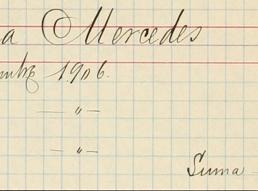 a Mercedes
mbre 1906.
— " —
— " —
Suma